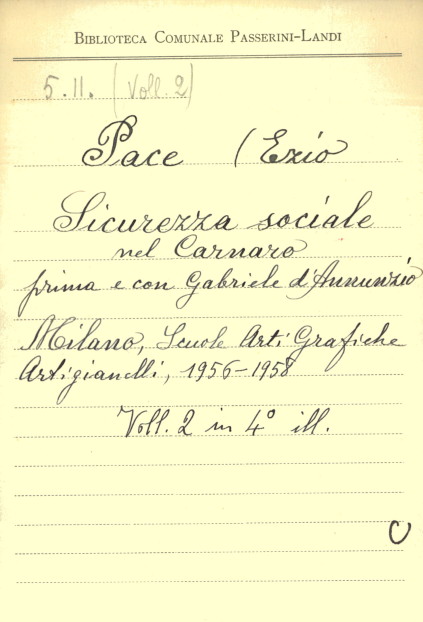 BIBLIOTECA COMUNALE PASSERINI-LANDI
5.11. (Voll. 2)
Pace (Ezio
Sicurezza sociale
nel Carnaro
prima e con Gabriele d'Annunzio
Milano, Scuole Arti Grafiche
Artigianelli, 1956-1958
Voll. 2 in 4° ill.
C